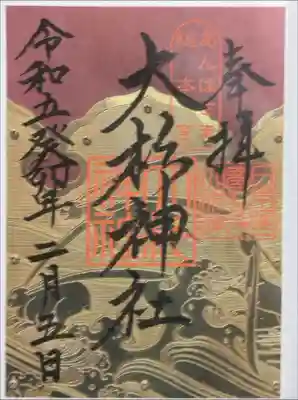 奉拝
大杉神社
令和五癸卯年二月五日